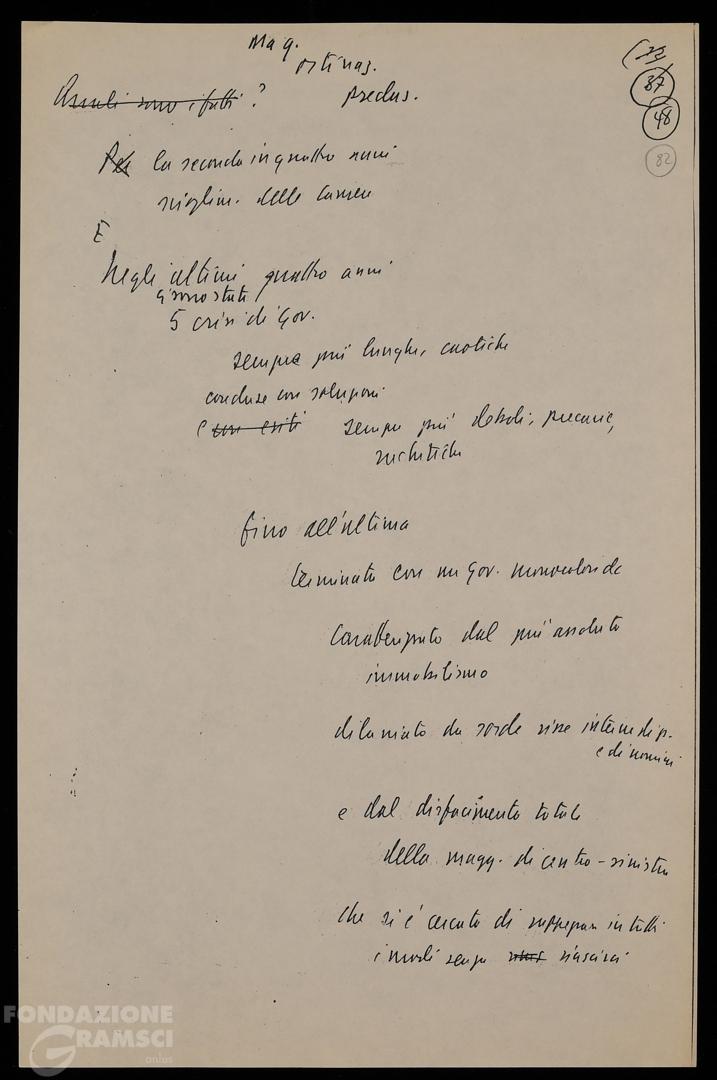 Mag.
ostinaz.
Quali sono i fatti ? preclus.
(33)
37
48
82
Per la seconda in quattro anni
scioglim. delle Camere
E
Negli ultimi quattro anni
ci sono state
5 crisi di Gov.
sempre più lunghe, caotiche
concluse con soluzioni
e con esiti sempre più deboli, precarie,
rachitiche
fino all'ultima
terminata con un Gov. monocolore dc
Caratterizzato dal più assoluto
immobilismo
dilaniato da sorde risse interne di p.
e di uomini
e dal disfacimento totale
della magg. di centro-sinistra
che si è cercato di rappezzare in tutti
i modi senza riuscirci
FONDAZIONE
GRAMSCI
onlus